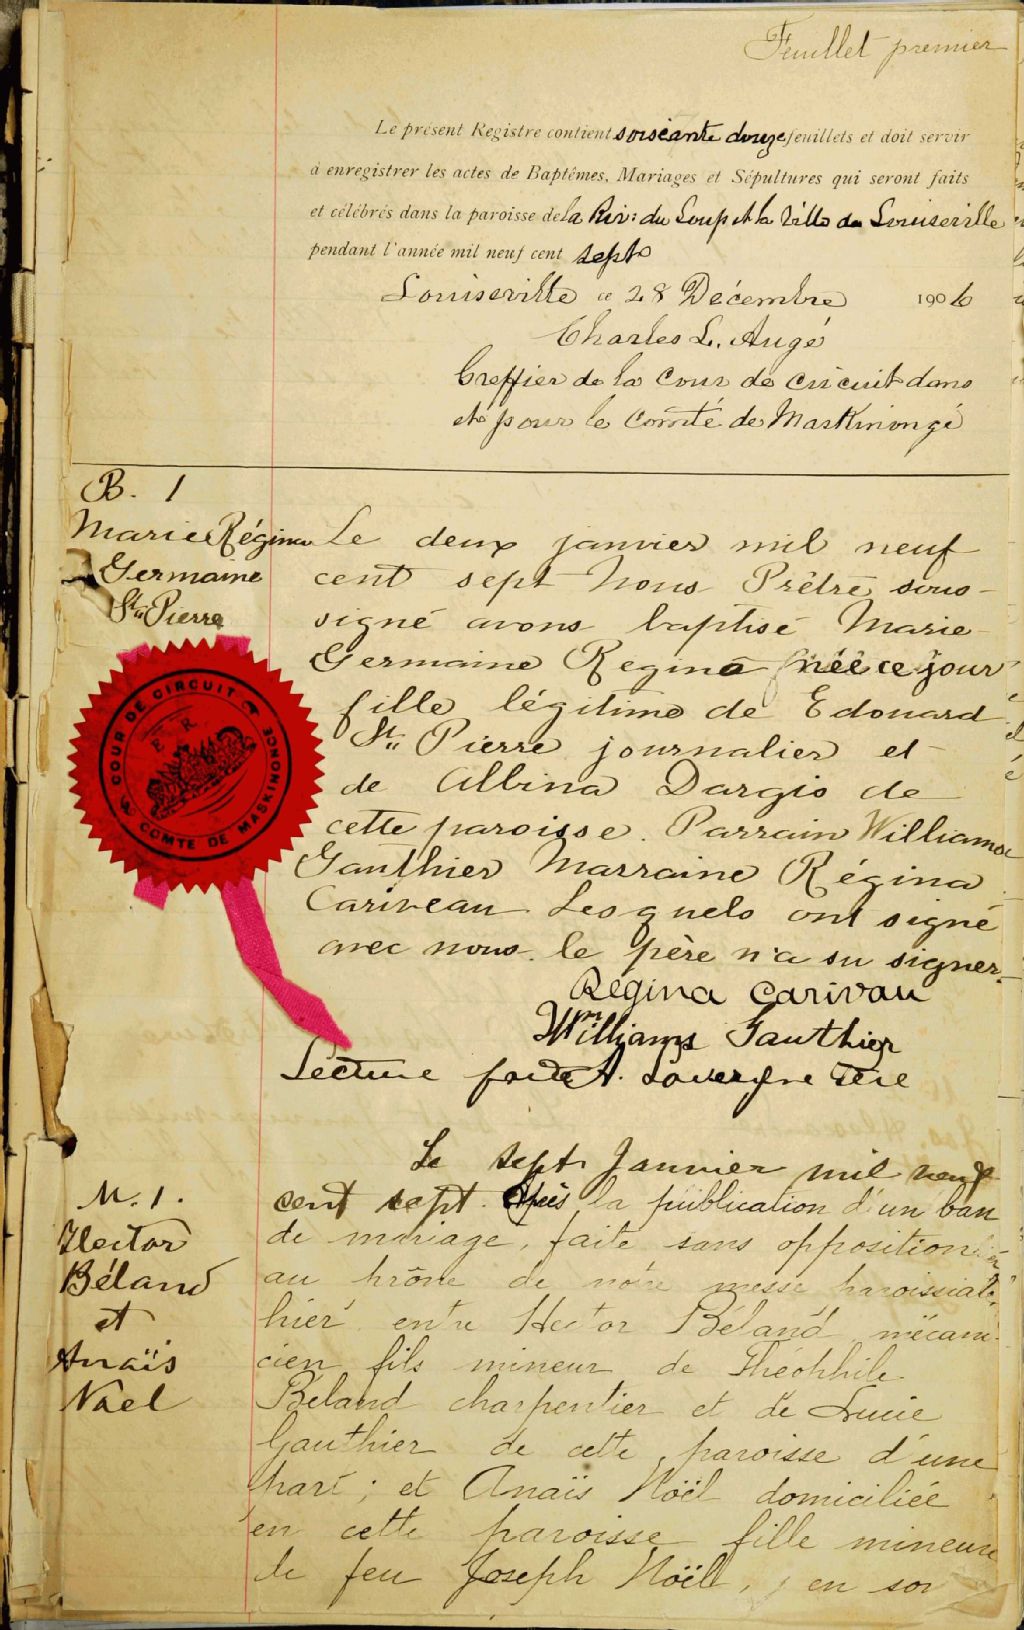 Feuillet premier
Le présent Registre contient soixante douze feuillets et doit servir
à enregistrer les actes de Baptêmes, Mariages et Sépultures qui seront faits
et célébrés dans la paroisse de la Riv: du Loup et la Ville de Louiseville
pendant l'année mil neuf cent sept
Louiseville ce 28 Décembre 1906
Charles L. Augé
Greffier de la Cour de circuit dans
et pour le Comté de Maskinongé
B. 1
Marie Régina
Germaine
St Pierre
Le deux janvier mil neuf
cent sept Nous Prêtre sous-
signé avons baptisé Marie
Germaine Regina née ce jour
fille légitime de Edouard
St Pierre journalier et
de Albina Dargis de
cette paroisse. Parrain William
Gauthier Marraine Régina
Cariveau Lesquels ont signé
avec nous. le père n'a su signer.
Régina Carivau
Wm Williams Gauthier
Lecture faite A. Lavergne Ptre
COUR DE CIRCUIT
E R
COMTE DE MASKINONGE
M. 1.
Hector
Béland
et
Anaïs
Noël
Le sept Janvier mil neuf
cent sept. Après la publication d'un ban
de mariage, faite sans opposition
au prône de notre messe paroissiale,
hier entre Hector Béland mécani-
cien fils mineur de Théophile
Béland charpentier et de Lucie
Gauthier de cette paroisse d'une
part; et Anaïs Noël domiciliée
en cette paroisse fille mineure
de feu Joseph Noël, en son